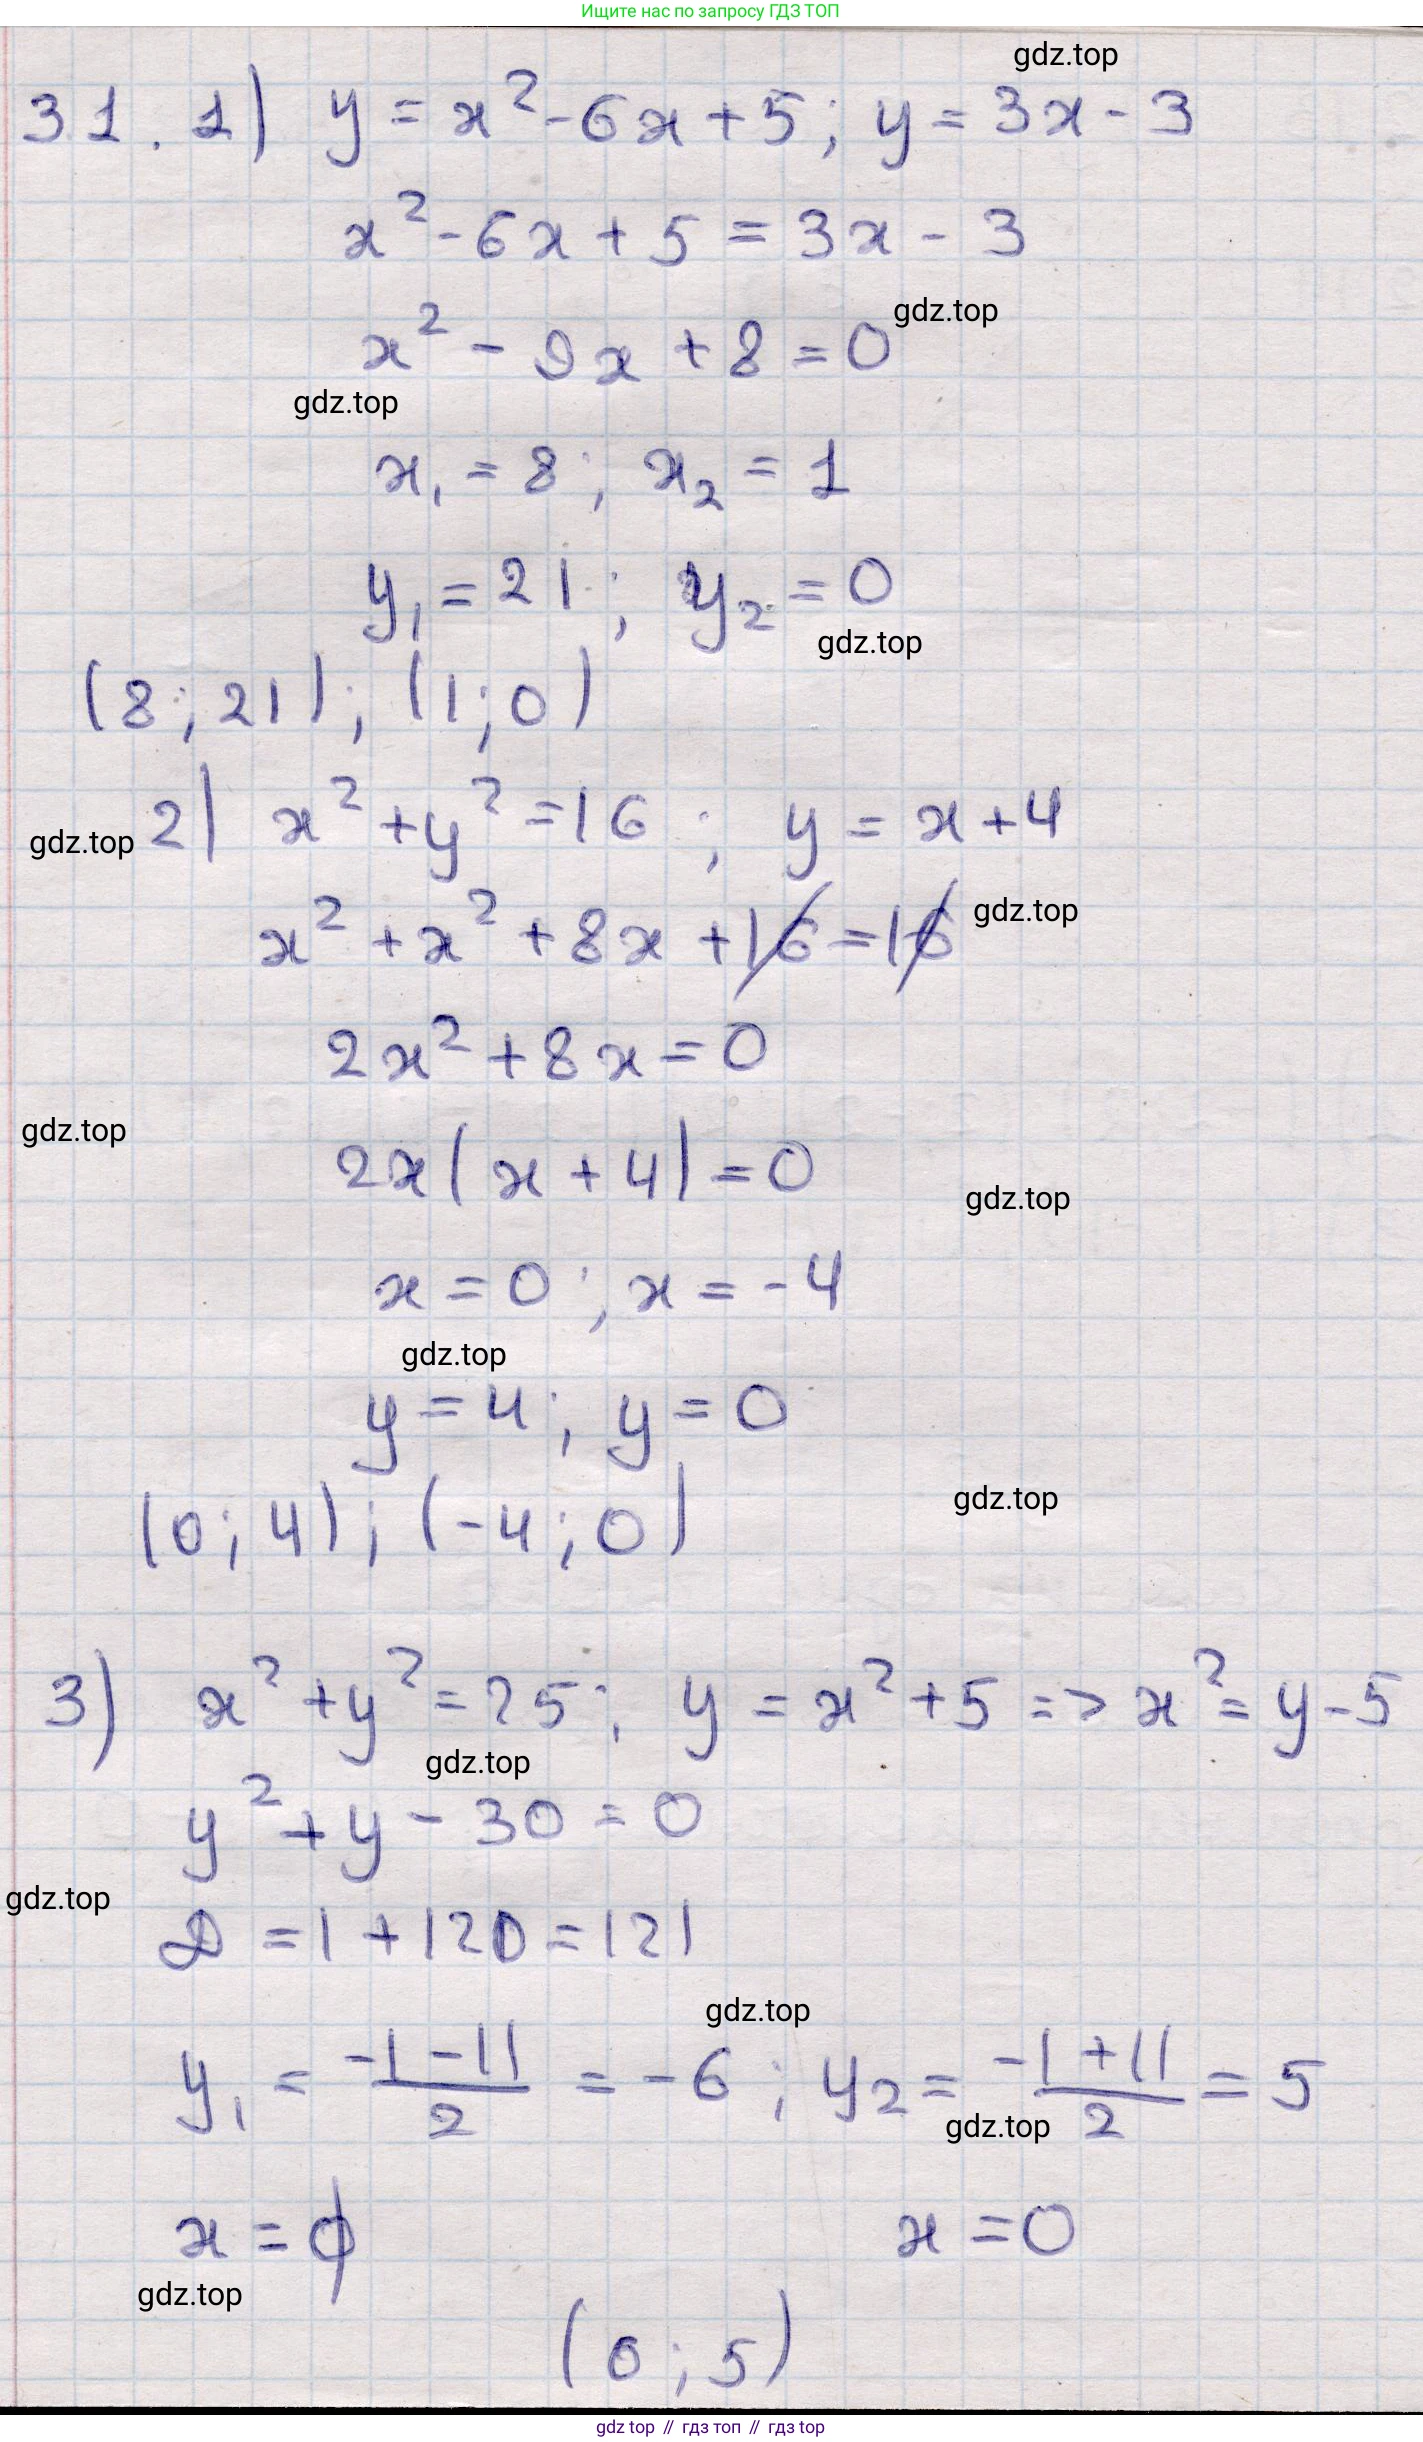 Ищите нас по запросу ГДЗ ТОП
gdz.top
31. 1) y = x² - 6x + 5; y = 3x - 3
x² - 6x + 5 = 3x - 3
gdz.top
x² - 9x + 8 = 0
gdz.top
x₁ = 8; x₂ = 1
y₁ = 21; y₂ = 0
gdz.top
(8; 21); (1; 0)
gdz.top 2) x² + y² = 16; y = x + 4
x² + x² + 8x + 16 = 16 gdz.top
2x² + 8x = 0
gdz.top
2x(x + 4) = 0
gdz.top
x = 0; x = -4
gdz.top
y = 4; y = 0
gdz.top
(0; 4); (-4; 0)
3) x² + y² = 25; y = x² + 5 => x² = y - 5
gdz.top
y² + y - 30 = 0
gdz.top
D = 1 + 120 = 121
gdz.top
y₁ = (-1 - 11)/2 = -6; y₂ = (-1 + 11)/2 = 5
gdz.top
x = ∅ x = 0
gdz.top
(0; 5)
gdz top // гдз топ // гдз top